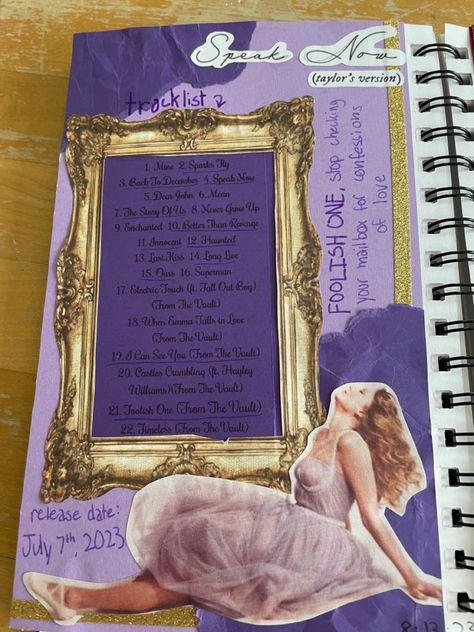 Speak Now
(taylor's version)
tracklist
1. Mine 2. Sparks Fly
3. Back To December 4. Speak Now
5. Dear John 6. Mean
7. The Story Of Us 8. Never Grow Up
9. Enchanted 10. Better Than Revenge
11. Innocent 12. Haunted
13. Last Kiss 14. Long Live
15. Ours 16. Superman
17. Electric Touch (ft. Fall Out Boy)
(From The Vault)
18. When Emma Falls in Love
(From The Vault)
19. I Can See You (From The Vault)
20. Castles Crumbling (ft. Hayley
Williams)(From The Vault)
21. Foolish One (From The Vault)
22. Timeless (From The Vault)
FOOLISH ONE, stop checking
your mailbox for confessions
of love
release date:
July 7th, 2023